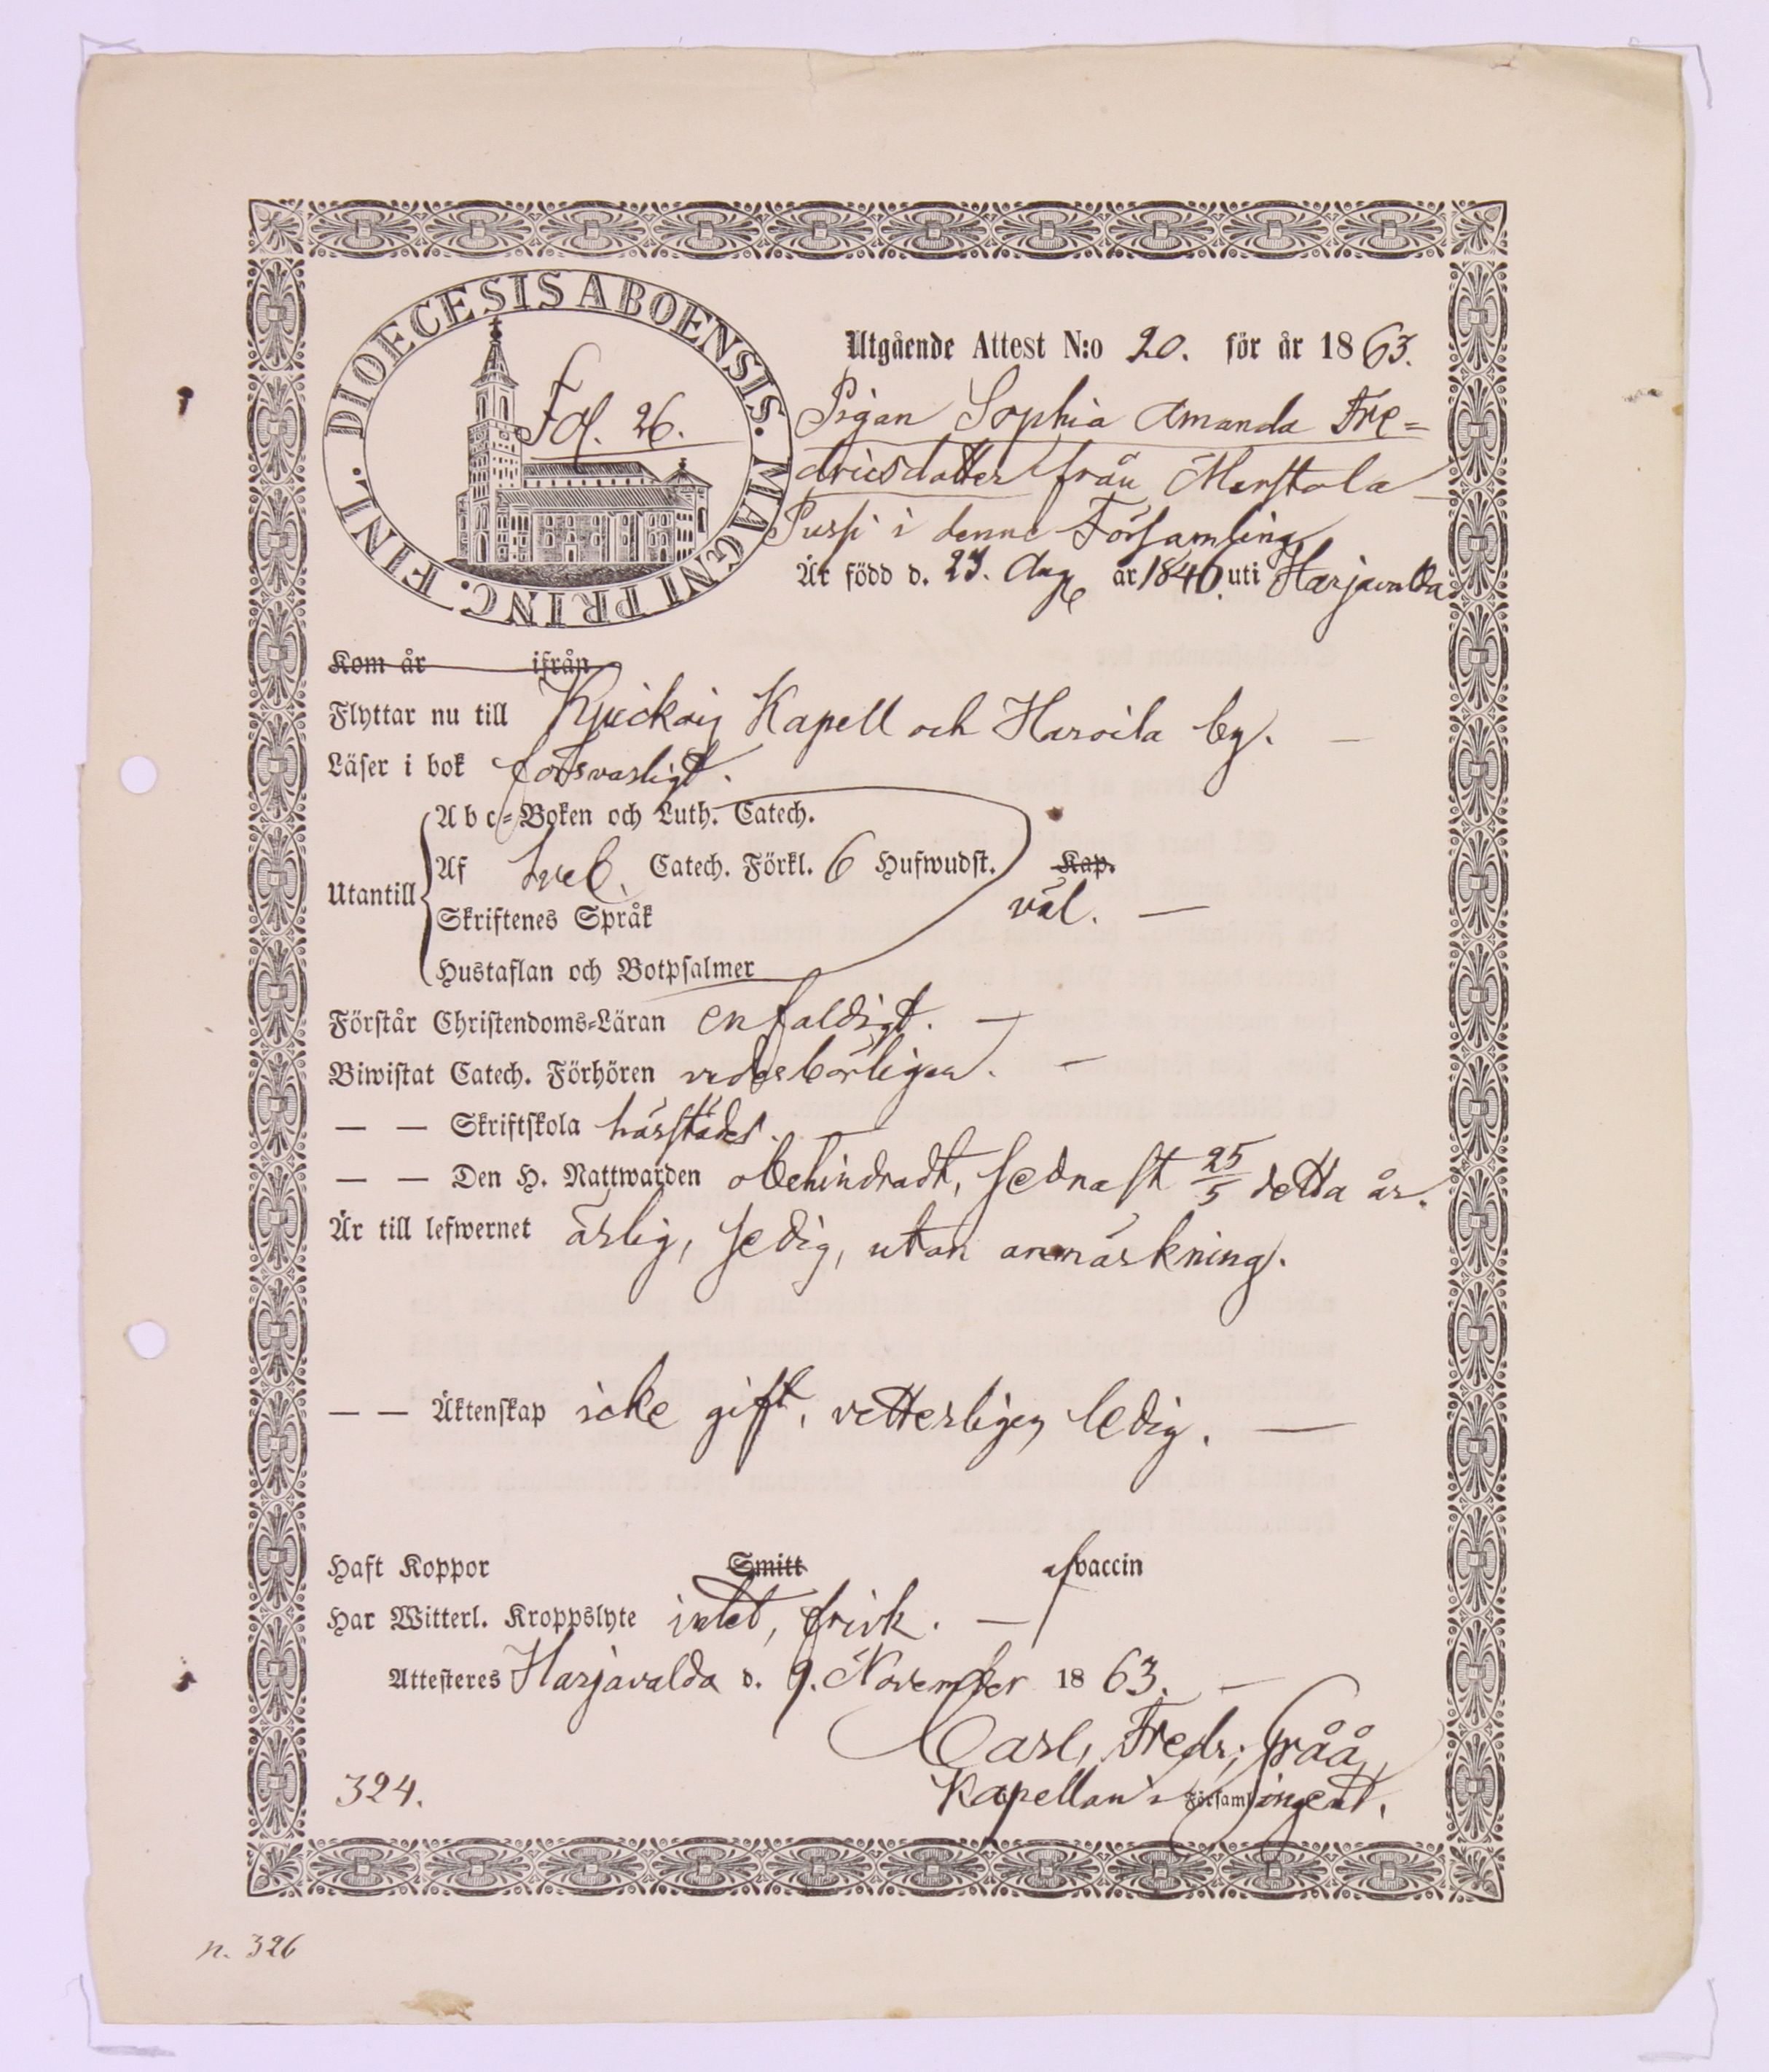 DIOECESIS ABOENSIS. MAGNI PRINC. FINL.
Fol. 26.
Utgående Attest N:o 20. för år 1863.
Pigan Sophia Amanda Fre=
dricsdotter från Merstola
Pussi i denne Församling
Är född d. 23. Aug. år 1840. uti Harjavalda
Kom år ifrån
Flyttar nu till Kjuickois Kapell och Haroila by. —
Läser i bok försvarligt.
Abc=Boken och Luth. Catech.
Utantill Af Svel. Catech. Förkl. 6 Hufwudst. Kap.
Skriftenes Språk väl. —
Hustaflan och Botpsalmer
Förstår Christendoms=Läran enfaldigt. —
Biwistat Catech. Förhören vederbörligen. —
— — Skriftskola härstädes. —
— — Den H. Nattwarden obehindradt, sednast 25/5 detta år.
Är till lefwernet ärlig, sedig, utan anmärkning.
— — Äktenskap icke gift, vetterligen ledig. —
Haft Koppor Smitt af vaccin
Har Witterl. Kroppslyte intet, frisk. —
Attesteres Harjavalda d. 9. November 1863. —
Carl Fredr. Fråå
Kapellan i Församlingen.
324.
n. 326